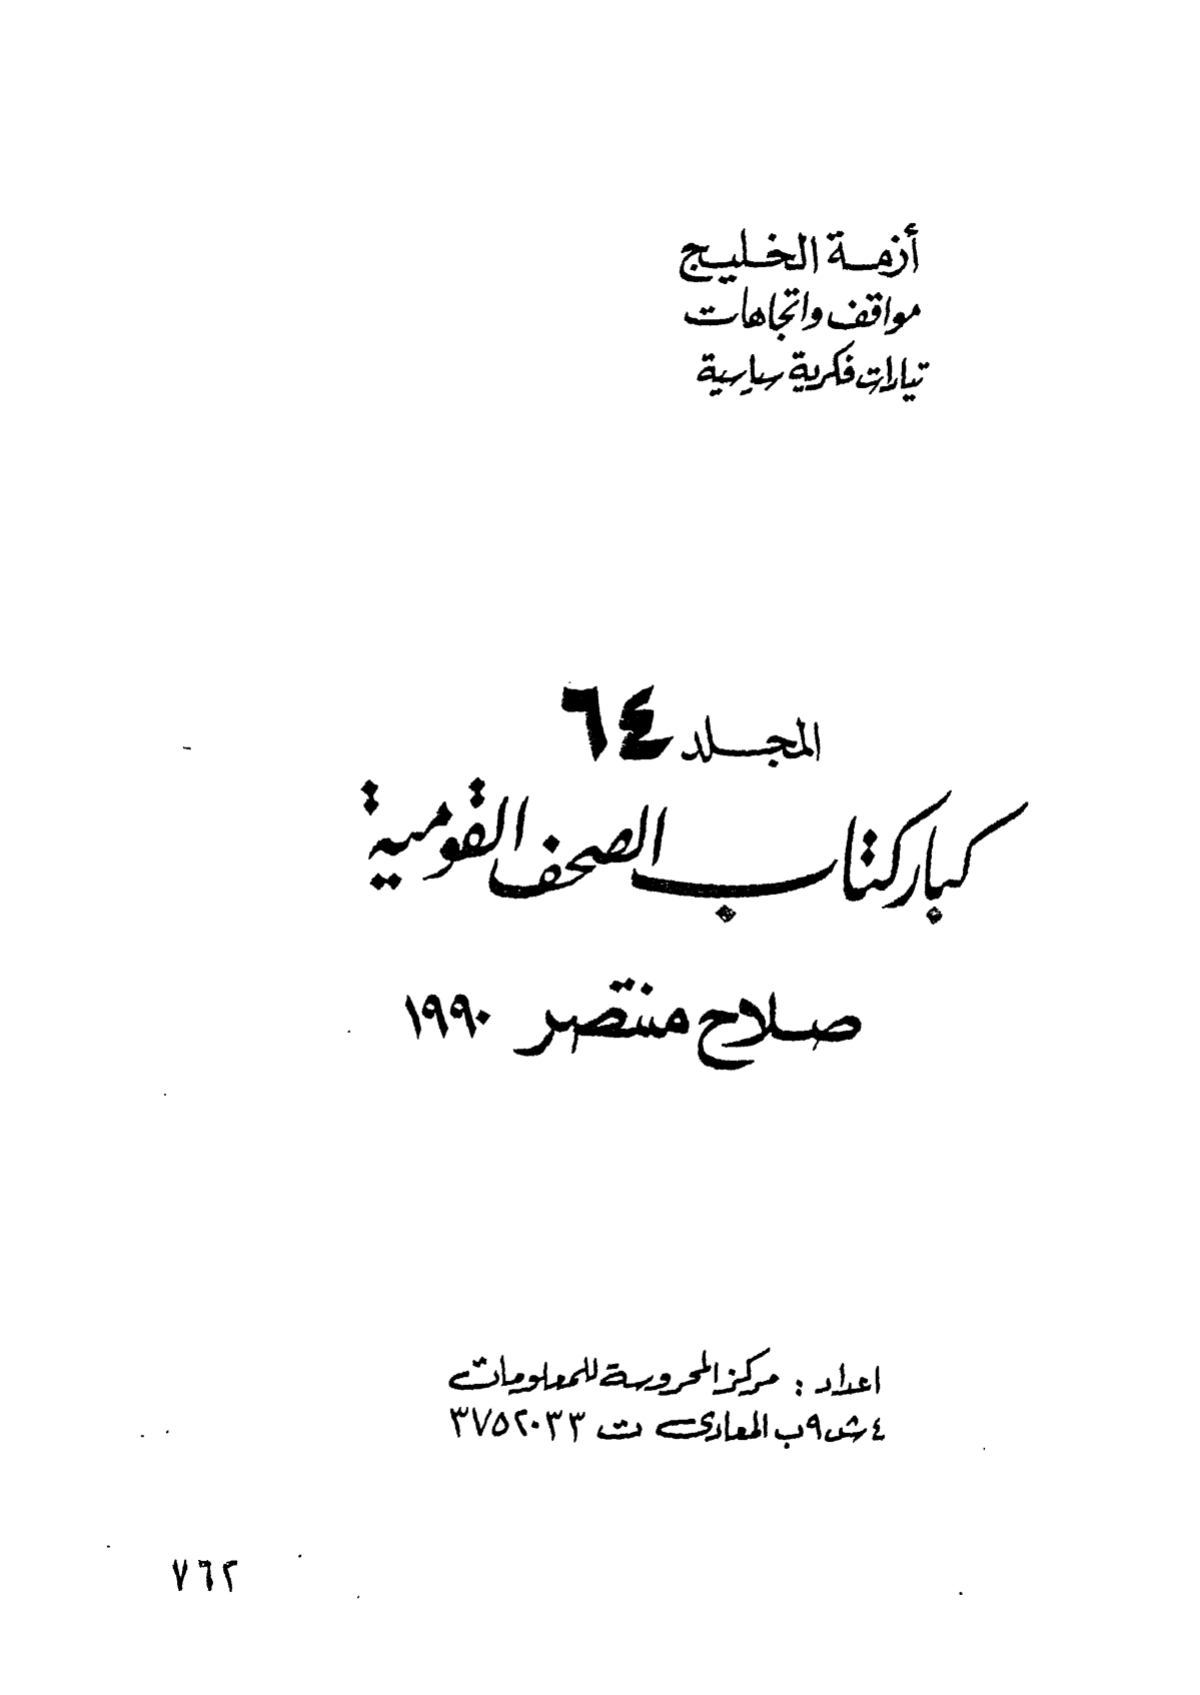 أزمة الخليج
مواقف واتجاهات
تيارات فكرية سياسية
المجلد ٦٤
كبار كتاب الصحف القومية
صلاح منتصر ١٩٩٠
اعداد : مركز المحروسة للمعلومات
٤ ش ٩ب المعادى ت ٣٧٥٢٠٣٣
٧٦٢